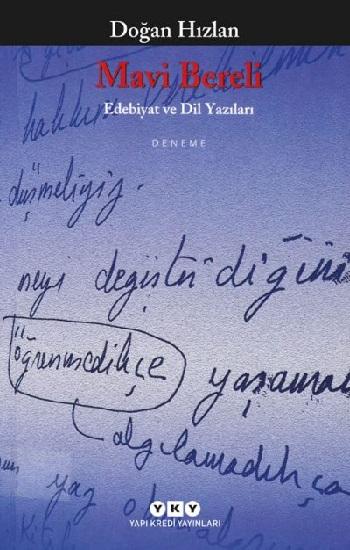 Doğan Hızlan
Mavi Bereli
Edebiyat ve Dil Yazıları
DENEME
hakkını
düşmeliyiz.
neyi değiştirdiğini
öğrenmedikçe
algılamadıkça
yaz
YKY
YAPI KREDİ YAYINLARI